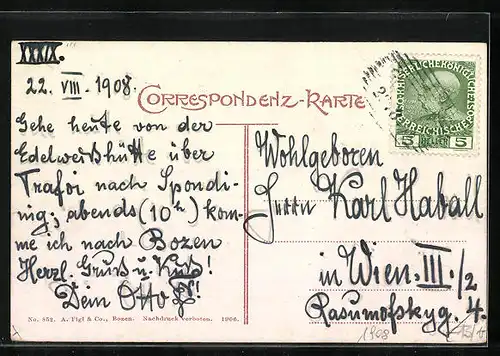 XXXIX.
22. VIII. 1908.
CORRESPONDENZ-KARTE
Gehe heute von der
Edelweißhütte über
Trafoi nach Spondi-
nig; abends (10h) kom-
me ich nach Bozen
Herzl. Gruß u. Kuß!
Dein Otto
Wohlgeboren
Herrn Karl Haball
in Wien. III./2
Rasumofskyg. 4.
KAISERLICHE KÖNIGLICHE
ÖSTERREICHISCHE
5 HELLER 5
No. 852. A. Tigl & Co., Bozen. Nachdruck verboten. 1906.
1908